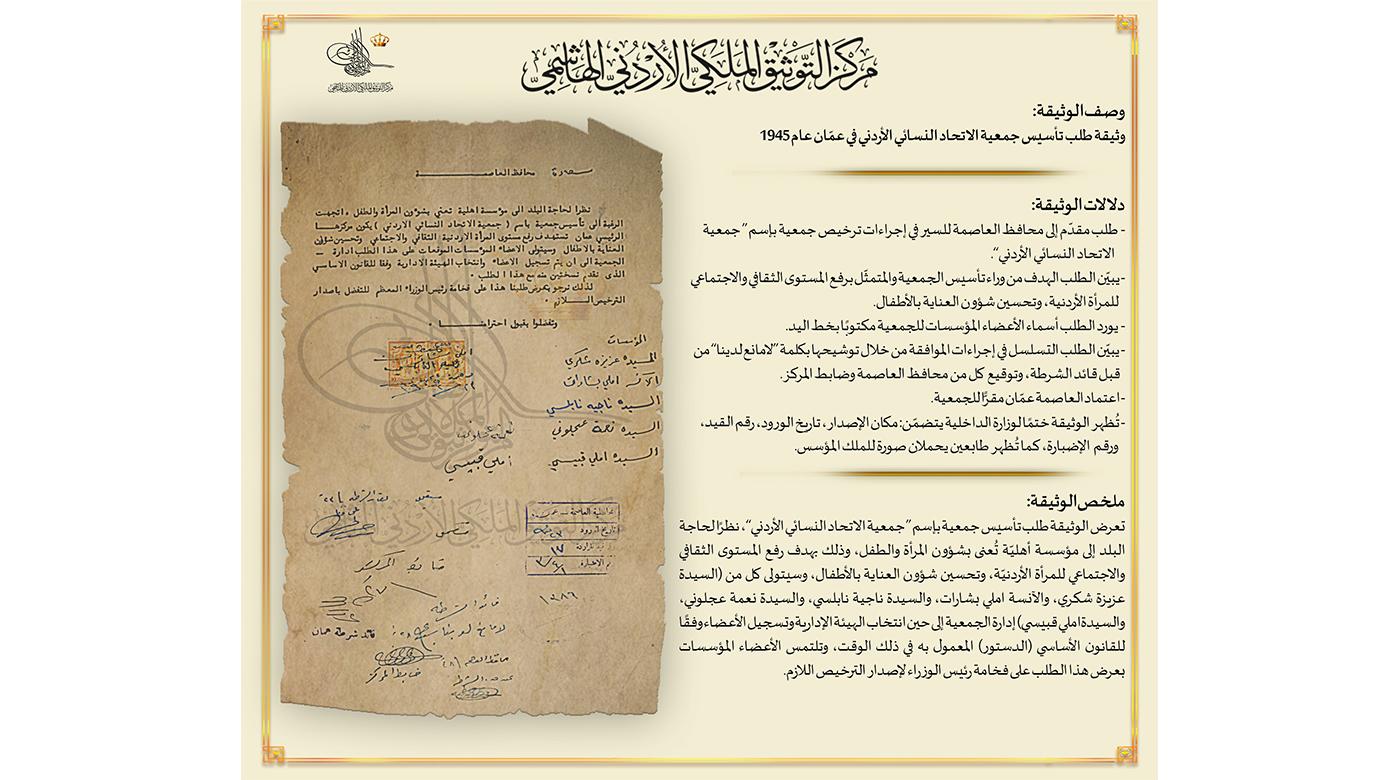 مركز التوثيق الملكي الأردني الهاشمي
مركز التوثيق الملكي الأردني الهاشمي
وصف الوثيقة:
وثيقة طلب تأسيس جمعية الاتحاد النسائي الأردني في عمّان عام 1945
دلالات الوثيقة:
- طلب مقدّم إلى محافظ العاصمة للسير في إجراءات ترخيص جمعية بإسم "جمعية
الاتحاد النسائي الأردني".
-يبيّن الطلب الهدف من وراء تأسيس الجمعية والمتمثّل برفع المستوى الثقافي والاجتماعي
للمرأة الأردنية، وتحسين شؤون العناية بالأطفال.
- يورد الطلب أسماء الأعضاء المؤسسات للجمعية مكتوبًا بخط اليد.
- يبيّن الطلب التسلسل في إجراءات الموافقة من خلال توشيحها بكلمة "لامانع لدينا" من
قبل قائد الشرطة، وتوقيع كل من محافظ العاصمة وضابط المركز.
- اعتماد العاصمة عمّان مقرًّا للجمعية.
- تُظهر الوثيقة ختمًا لوزارة الداخلية يتضمّن: مكان الإصدار، تاريخ الورود، رقم القيد،
ورقم الإضبارة، كما تُظهر طابعين يحملان صورة للملك المؤسس.
ملخص الوثيقة:
تعرض الوثيقة طلب تأسيس جمعية بإسم "جمعية الاتحاد النسائي الأردني"، نظرًا لحاجة
البلد إلى مؤسسة أهليّة تُعنى بشؤون المرأة والطفل، وذلك بهدف رفع المستوى الثقافي
والاجتماعي للمرأة الأردنيّة، وتحسين شؤون العناية بالأطفال، وسيتولى كل من (السيدة
عزيزة شكري، والآنسة املي بشارات، والسيدة ناجية نابلسي، والسيدة نعمة عجلوني،
والسيدة املي قبيسي) إدارة الجمعية إلى حين انتخاب الهيئة الإدارية وتسجيل الأعضاء وفقًا
للقانون الأساسي (الدستور) المعمول به في ذلك الوقت، وتلتمس الأعضاء المؤسسات
بعرض هذا الطلب على فخامة رئيس الوزراء لإصدار الترخيص اللازم.
سعادة محافظ العاصمة
نظرا لحاجة البلد الى مؤسسة اهلية تعني بشؤون المرأة والطفل، اتجهت
الرغبة الى تأسيس جمعية باسم (جمعية الاتحاد النسائي الاردني) يكون مركزها
الرئيسي عمان تستهدف رفع مستوى المرأة الاردنية الثقافي والاجتماعي وتحسين شؤون
العناية بالاطفال وسيتولى الاعضاء المؤسسات الموقعات على هذا الطلب ادارة
الجمعية الى ان يتم تسجيل الاعضاء وانتخاب الهيئة الادارية وفقا للقانون الاساسي
الذى نقدم نسختين منه مع هذا الطلب.
لذلك نرجو بعرض طلبنا هذا على فخامة رئيس الوزراء المعظم للتفضل باصدار
الترخيص اللازم.
وتفضلوا بقبول احترامنا.
المؤسسات
السيدة عزيزه شكري
املي بشارات
السيده ناجيه نابلسي
السيده نعمة عجلوني
السيده املي قبيسي
أملي قبيسي
محافظة العاصمة
تاريخ الورود
رقم الاضبارة
ضابط المركز
قائد الشرطة
قائد شرطة عمان
ضابط المركز